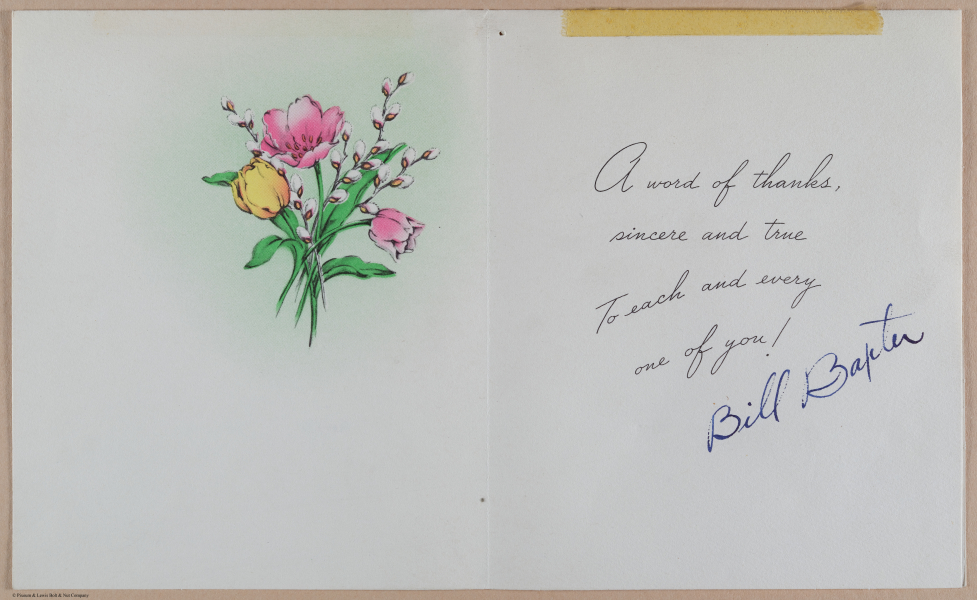 A word of thanks,
sincere and true
To each and every
one of you!
Bill Baxter
© Pioneer & Lewis Bolt & Nut Company